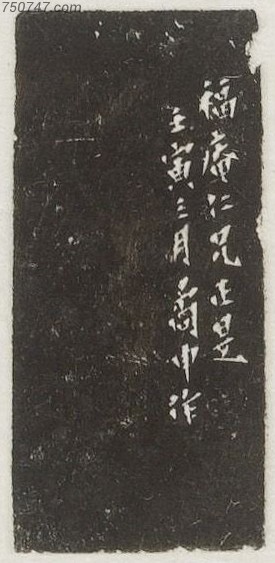 750747.com
福庵仁兄正是
壬寅三月喬申作